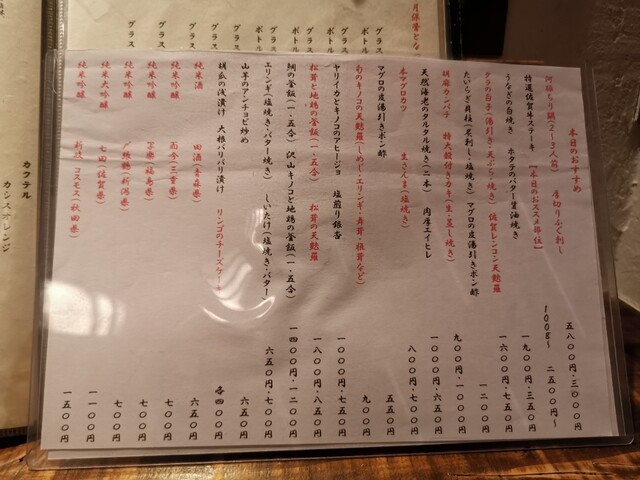 本日のおすすめ
阿膳ちり鍋(2~3人前) 厚切りふぐ刺し 五八〇〇円・三〇〇〇円
特選佐賀牛ステーキ 『本日のおススメ部位』 100g~ 二五〇〇円~
うなぎの白焼き ホタテのバター醤油焼き 一九〇〇円・三五〇円
タラの白子(湯引き・天ぷら・焼き) 佐賀レンコン天麩羅 一六〇〇円・五五〇円
たいらぎ貝柱(炙刺し・塩焼き) マグロの皮湯引きポン酢 一二〇〇円
胡麻カンパチ 特大殻付きカキ(生・蒸し焼き) 九〇〇円・一〇〇〇円
天然海老のタルタル焼き(二本) 肉厚エイヒレ 一〇〇〇円・六五〇円
本マグロカツ 生さんま(塩焼き) 八〇〇円・七〇〇円
マグロの皮湯引きポン酢 五五〇円
旬のキノコの天麩羅(しめじ・エリンギ・舞茸・椎茸など) 九〇〇円
ヤリイカとキノコのアヒージョ 塩煎り銀杏 一〇〇〇円・七五〇円
松茸と地鶏の釜飯(一・五合) 松茸の天麩羅 一八〇〇円・八五〇円
鯛の釜飯(一・五合) 沢山キノコと地鶏の釜飯(一・五合) 一四〇〇円・一二〇〇円
エリンギ(塩焼き・バター焼き) しいたけ(塩焼き・バター) 六五〇円・七〇〇円
山芋のアンチョビ炒め 六五〇円
胡瓜の浅漬け 大根バリバリ漬け リンゴのチーズケーキ 各四〇〇円
純米酒 田酒(青森県) 六五〇円
純米吟醸 而今(三重県) 七〇〇円
純米吟醸 写楽(福島県) 七〇〇円
純米吟醸 〆張鶴(新潟県) 七〇〇円
純米大吟醸 七田(佐賀県) 一一〇〇円
純米吟醸 新政 コスモス(秋田県) 一五〇〇円
グラス
ボトル
グラス
ボトル
グラス
ボトル
グラス
グラス
カクテル
カシスオレンジ